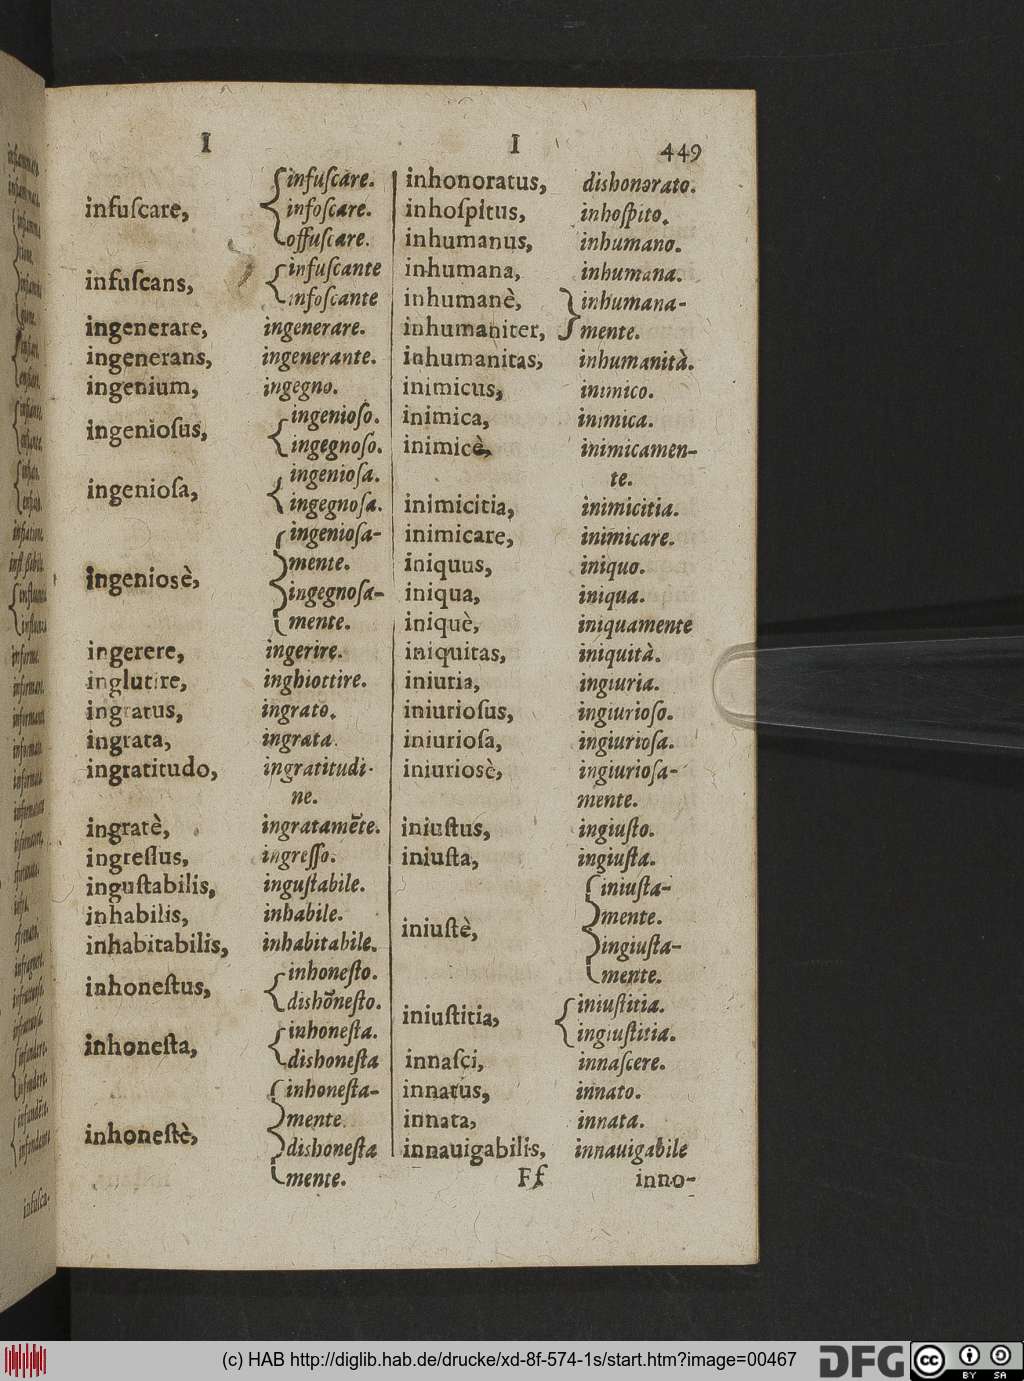 I
infuſcare,
infuſcare.
infoſcare.
offuſcare.
infuſcans,
infuſcante
infoſcante
ingenerare, ingenerare.
ingenerans, ingenerante.
ingenium, ingegno.
ingenioſus,
ingenioſo.
ingegnoſo.
ingenioſa,
ingenioſa.
ingegnoſa.
ingeniosè,
ingenioſa-
mente.
ingegnoſa-
mente.
ingerere, ingerire.
inglutire, inghiottire.
ingratus, ingrato.
ingrata, ingrata.
ingratitudo, ingratitudi-
ne.
ingratè, ingratamẽte.
ingreſſus, ingreſſo.
inguſtabilis, inguſtabile.
inhabilis, inhabile.
inhabitabilis, inhabitabile.
inhoneſtus,
inhoneſto.
dishõneſto.
inhoneſta,
inhoneſta.
dishoneſta
inhoneſtè,
inhoneſta-
mente.
dishoneſta
mente.
I 449
inhonoratus, dishonorato.
inhoſpitus, inhoſpito.
inhumanus, inhumano.
inhumana, inhumana.
inhumanè, inhumana-
inhumaniter, mente.
inhumanitas, inhumanità.
inimicus, inimico.
inimica, inimica.
inimicè, inimicamen-
te.
inimicitia, inimicitia.
inimicare, inimicare.
iniquus, iniquo.
iniqua, iniqua.
iniquè, iniquamente
iniquitas, iniquità.
iniuria, ingiuria.
iniurioſus, ingiurioſo.
iniurioſa, ingiurioſa.
iniuriosè, ingiurioſa-
mente.
iniuſtus, ingiuſto.
iniuſta, ingiuſta.
iniuſtè,
iniuſta-
mente.
ingiuſta-
mente.
iniuſtitia,
iniuſtitia.
ingiuſtitia.
innaſci, innaſcere.
innatus, innato.
innata, innata.
innauigabilis, innauigabile
Ff inno-
(c) HAB http://diglib.hab.de/drucke/xd-8f-574-1s/start.htm?image=00467
DFG
cc
BY SA